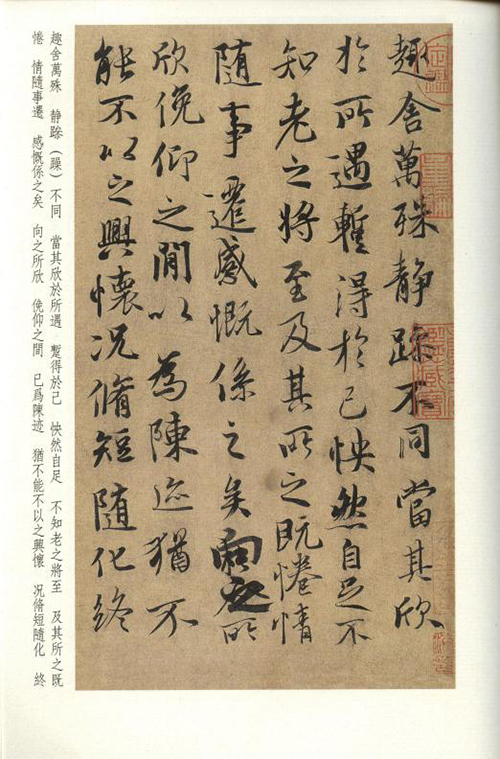 趣舍萬殊静躁不同當其欣
於所遇蹔得於己怏然自足不
知老之將至及其所之既惓情
随事遷感慨係之矣向之所
欣俛仰之閒以為陳迹猶不
能不以之興懷况脩短随化終
趣舍萬殊　静跡（躁）不同　當其欣於所遇　蹔得於己　怏然自足　不知老之將至　及其所之既
惓　情隨事遷　感慨係之矣　向之所欣　俛仰之間　已爲陳迹　猶不能不以之興懷　况脩短隨化　終